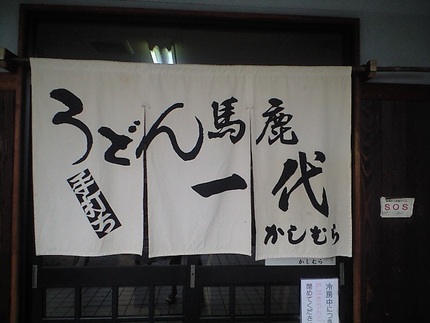 うどん馬鹿
一代
手打ち
かしむら
かしむら
SOS
冷房中につき
閉めてくださ